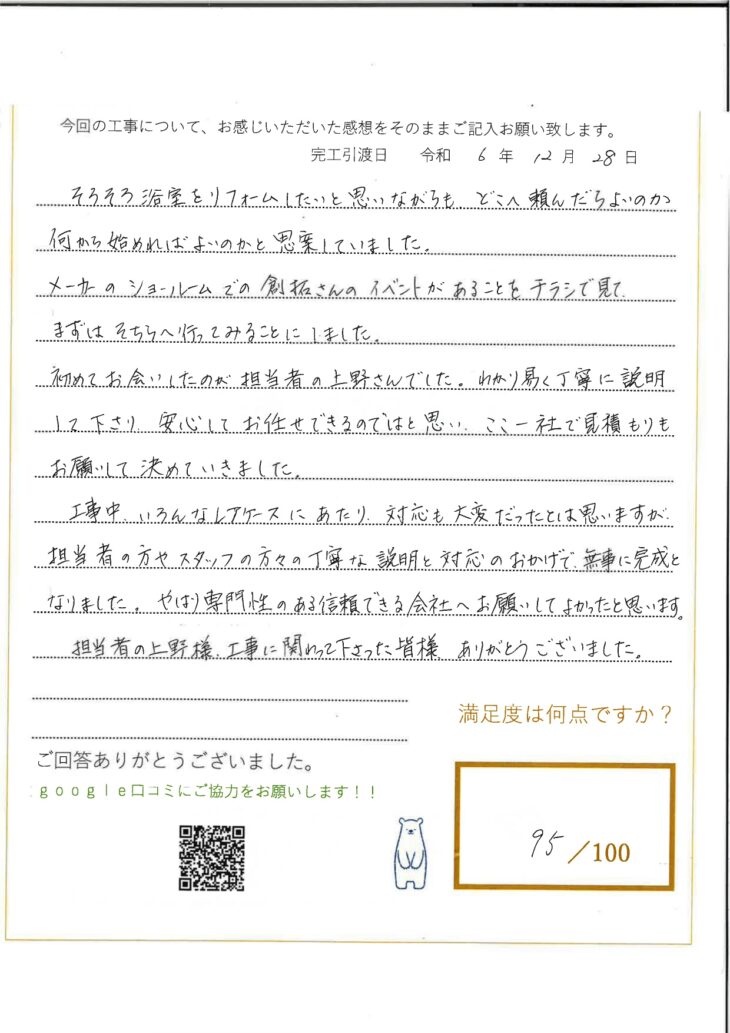 今回の工事について、お感じいただいた感想をそのままご記入お願い致します。
完工引渡日 令和 6 年 12 月 28 日
そろそろ浴室をリフォームしたいと思いながらも どこへ頼んだらよいのか
何から始めればよいのかと思案していました。
メーカーのショールームでの創拓さんのイベントがあることをチラシで見て、
まずはそちらへ行ってみることにしました。
初めてお会いしたのが担当者の上野さんでした。わかり易く丁寧に説明
して下さり 安心してお任せできるのではと思い、ここ一社で見積もりも
お願いして決めていきました。
工事中、いろんなレアケースにあたり、対応も大変だったとは思いますが、
担当者の方やスタッフの方々の丁寧な説明と対応のおかげで、無事に完成と
なりました。やはり専門性のある信頼できる会社へお願いしてよかったと思います。
担当者の上野様、工事に関わって下さった皆様、ありがとうございました。
満足度は何点ですか？
ご回答ありがとうございました。
google口コミにご協力をお願いします！！
95 /100